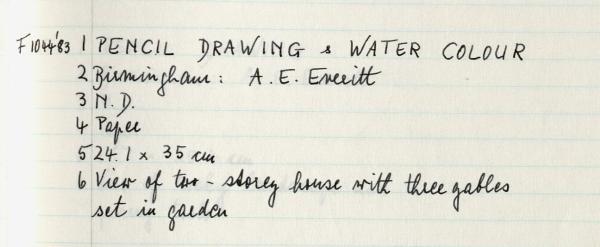 F1044'83 1 PENCIL DRAWING & WATER COLOUR
2 Birmingham: A. E. Everitt
3 N.D.
4 Paper
5 24.1 x 35 cm
6 View of two-storey house with three gables
set in garden